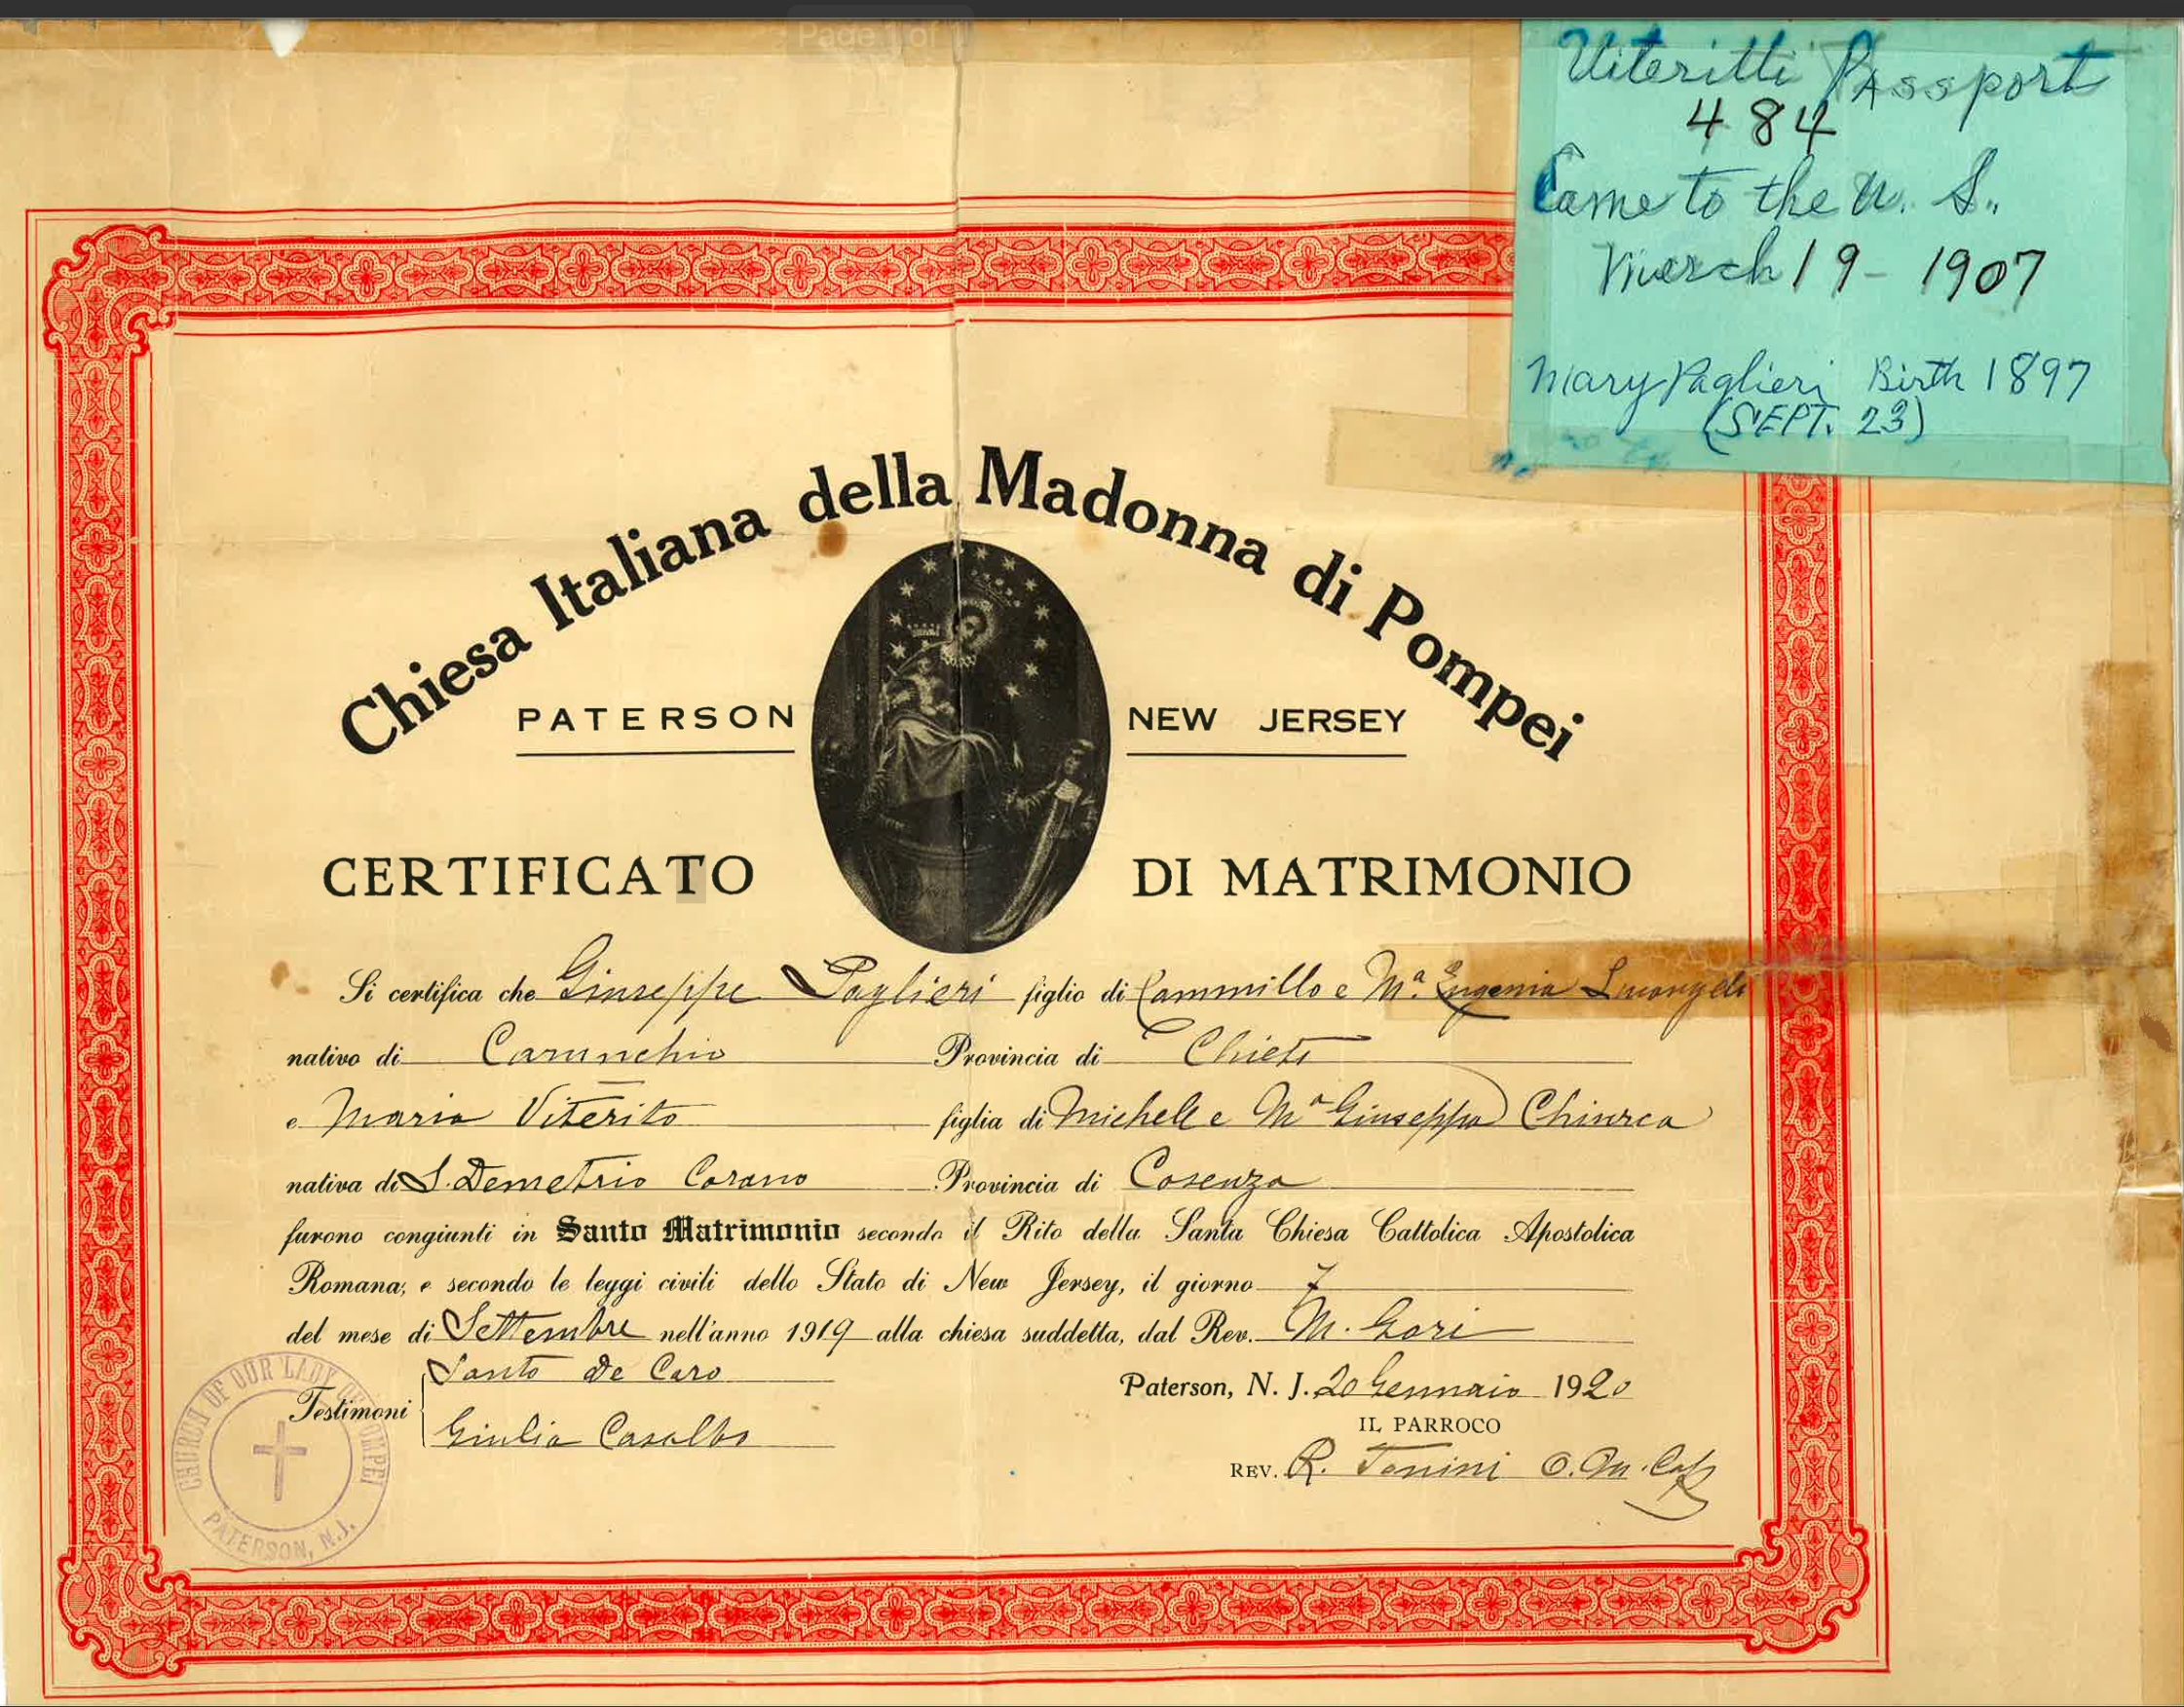 Page 1 of 1
Viteritti Passport
484
Came to the U. S.,
March 19 - 1907
Mary Paglieri Birth 1897
(SEPT. 23)
Chiesa Italiana della Madonna di Pompei
PATERSON NEW JERSEY
CERTIFICATO DI MATRIMONIO
Si certifica che Giuseppe Paglieri figlio di Cammillo e Mª. Eugenia
nativo di Carunchio Provincia di Chieti
e Maria Viterito figlia di Michele e Mª Giuseppa
nativa di S. Demetrio Corano Provincia di Cosenza
furono congiunti in Santo Matrimonio secondo il Rito della Santa Chiesa Cattolica Apostolica
Romana; e secondo le leggi civili dello Stato di New Jersey, il giorno 7
del mese di Settembre nell'anno 1919 alla chiesa suddetta, dal Rev. M. Gori
Testimoni
Santo De Caro
Giulia Casalbo
Paterson, N. J. 20 Gennaio 1920
IL PARROCO
REV. R. Tonini O. M. Cap
CHURCH OF OUR LADY OF POMPEI
PATERSON, N.J.